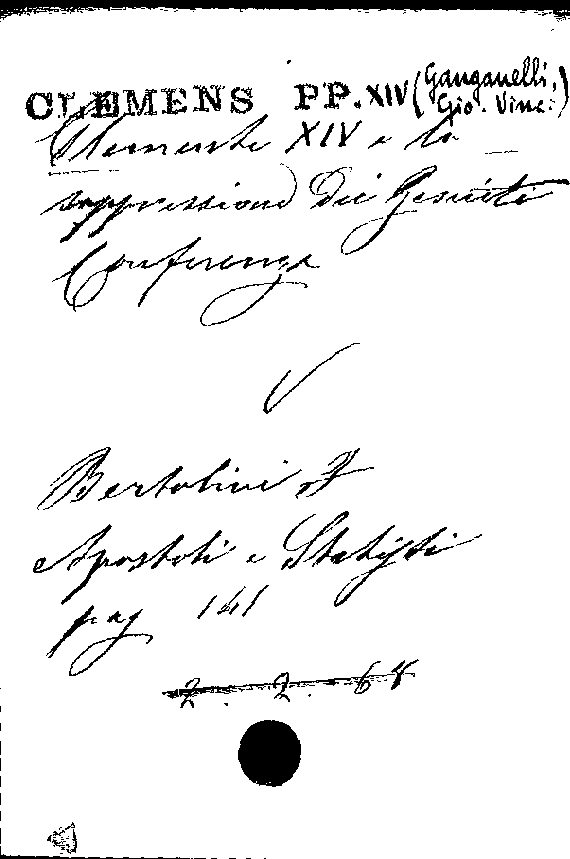 CLEMENS PP. XIV (Ganganelli,
Gio. Vinc.)
Clemente XIV e la
soppressione dei Gesuiti
Conferenza
V
Bertolini F
Apostoli e Statisti
pag 141
2. 2. 68